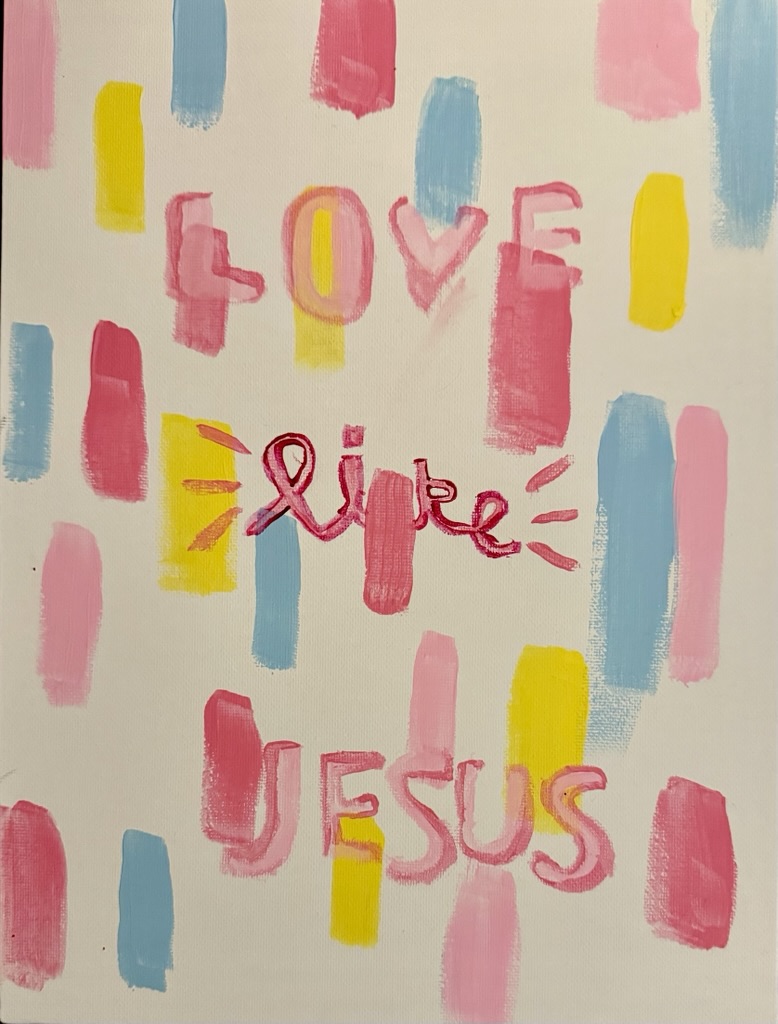 LOVE
like
JESUS